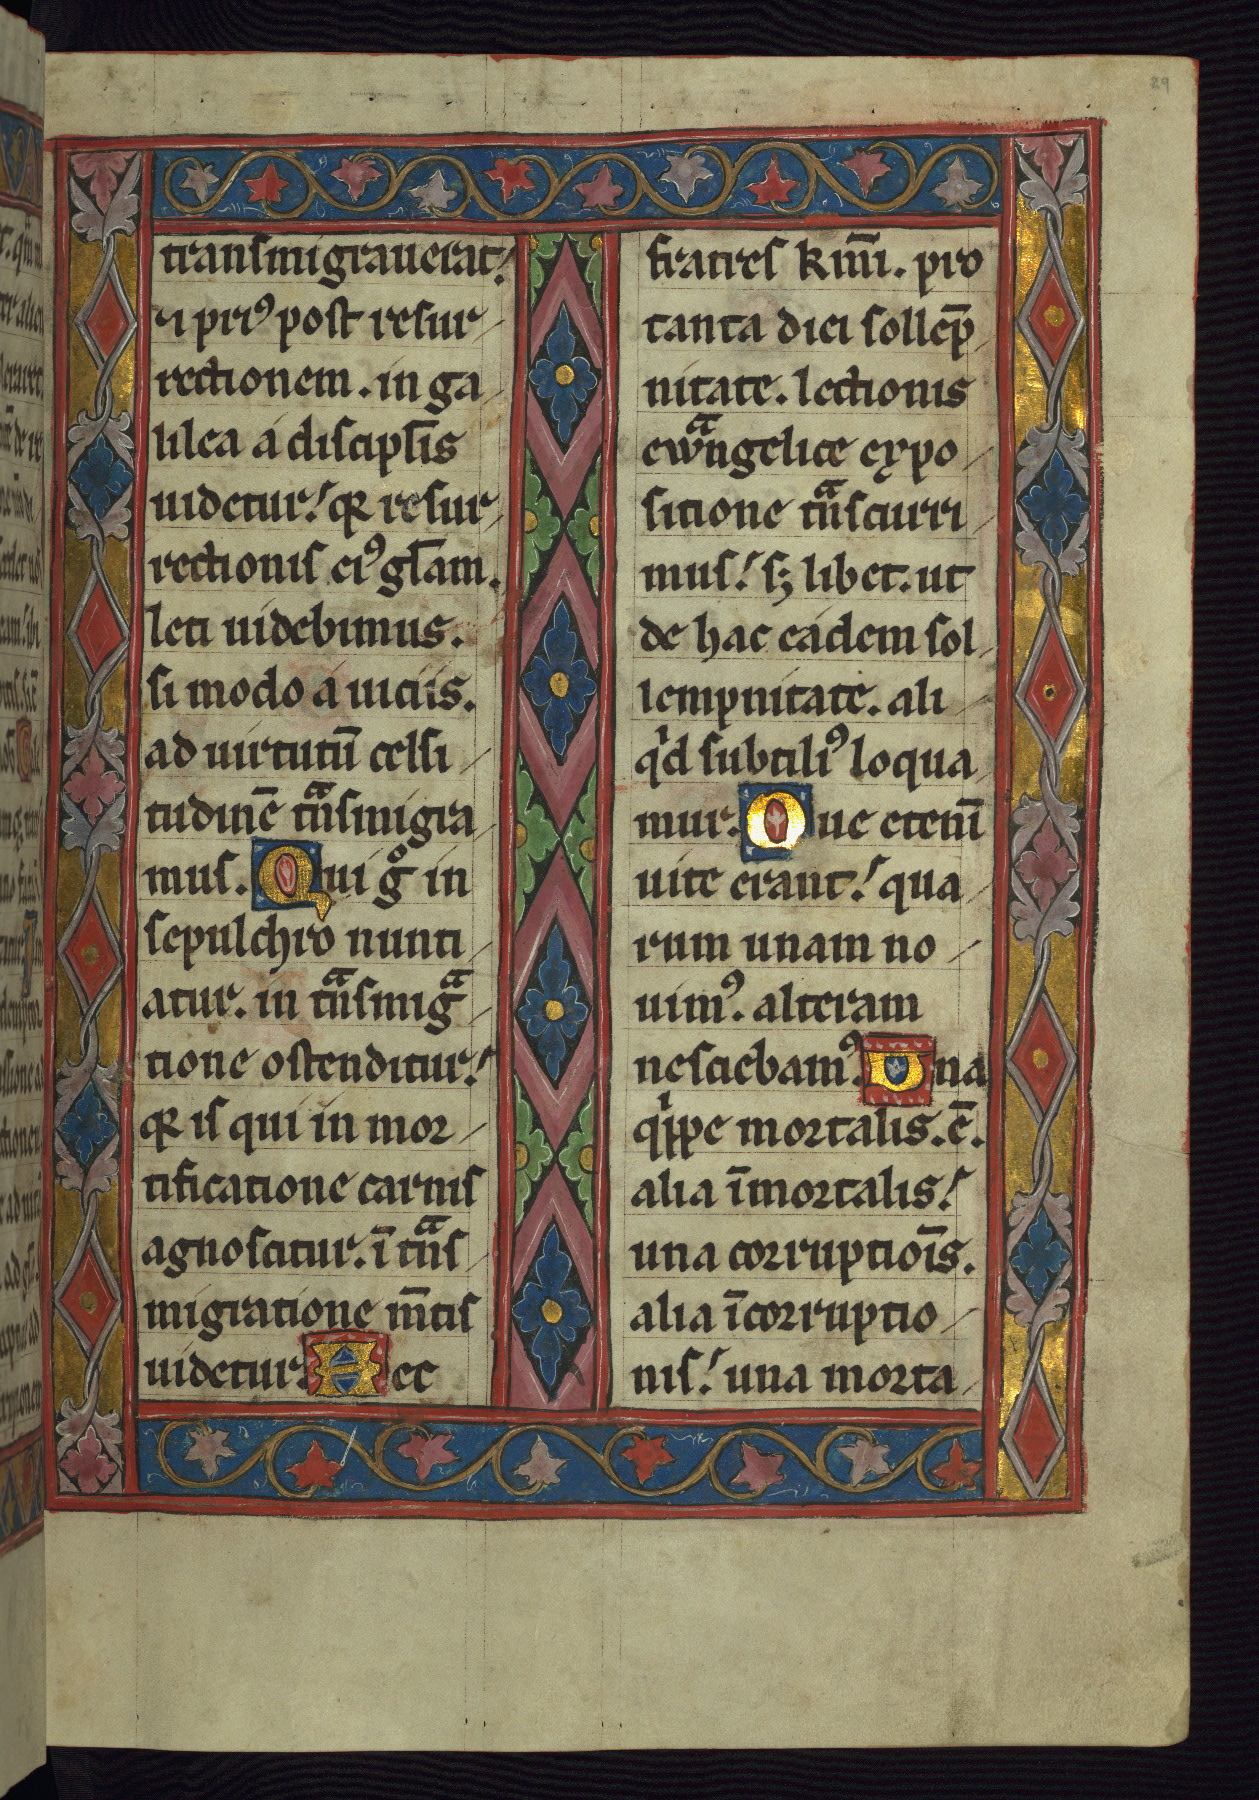 29
transmigrauerat!
⁊ pri⁹ post resur
rectionem. in ga
lilea a discipl̅is
uidetur! qr resur
rectionis ei⁹ gl̅am.
leti uidebimus.
si modo a uiciis.
ad uirtutū celsi
tudinē tͣnsmigra
mus. Qui gͦ in
sepulchro nunti
atur. in tͣnsmigͣ
tione ostenditur!
qr is qui in mor
tificatione carnis
agnoscitur. ī tͣns
migratione m̅tis
uidetur. Hec
fratres km̅i. pro
tanta diei sollep̅
nitate. lectionis
ewͣngelice expo
sitione tͣnscurri
mus! sꝫ libet. ut
de hac eadem sol
lempnitate. ali
qͥd subtili⁹ loqua
mur. Due etenī
uite erant! qua
rum unam no
uim⁹. alteram
nesciebam⁹. Una
qͥppe mortalis. ē.
alia īmortalis!
una corruptiōis.
alia īcorruptio
nis! una morta